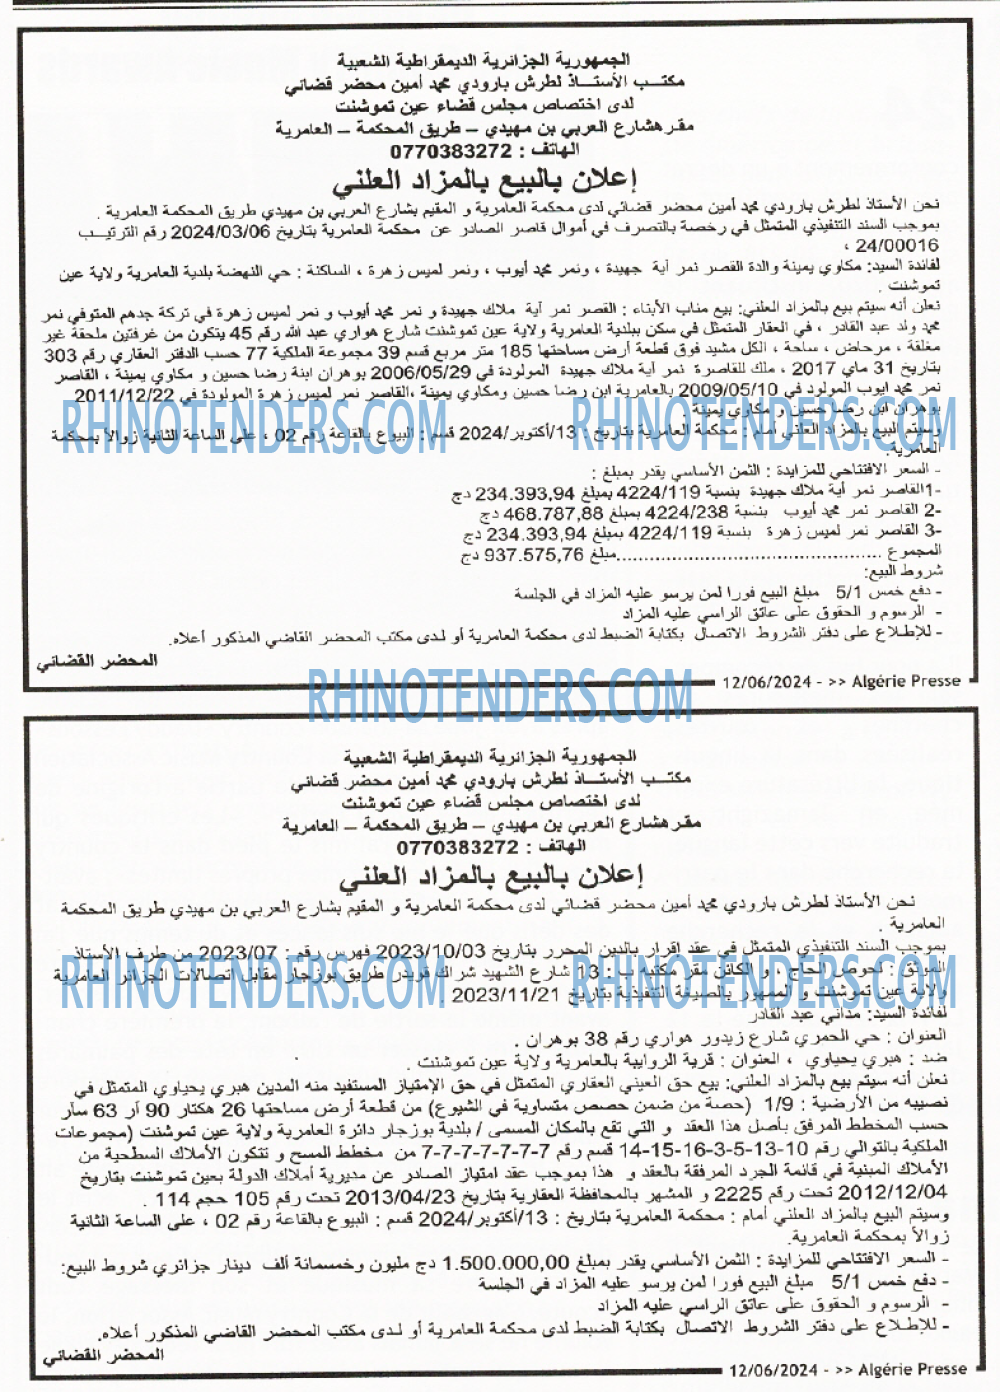 الجمهورية الجزائرية الديمقراطية الشعبية
مكتـب الأستــاذ لطرش بارودي محمد أمين محضر قضائي
لدى اختصاص مجلس قضاء عين تموشنت
مقرهشارع العربي بن مهيدي – طريق المحكمة – العامرية
الهاتف : 0770383272
إعلان بالبيع بالمزاد العلني
نحن الأستاذ لطرش بارودي محمد أمين محضر قضائي لدى محكمة العامرية و المقيم بشارع العربي بن مهيدي طريق المحكمة العامرية .
بموجب السند التنفيذي المتمثل في رخصة بالتصرف في أموال قاصر الصادر عن محكمة العامرية بتاريخ 2024/03/06 رقم الترتيـب
24/00016 ،
لفائدة السيد: مكاوي يمينة والدة القصر نمر آية جهيدة ، ونمر محمد أيوب ، ونمر لميس زهرة ، الساكنة : حي النهضة بلدية العامرية ولاية عين
تموشنت .
نعلن أنه سيتم بيع بالمزاد العلني: بيع مناب الأبناء : القصر نمر آية ملاك جهيدة و نمر محمد أيوب و نمر لميس زهرة في تركة جدهم المتوفي نمر
محمد ولد عبد القادر ، في العقار المتمثل في سكن ببلدية العامرية ولاية عين تموشنت شارع هواري عبد الله رقم 45 يتكون من غرفتين ملحقة غير
مغلقة ، مرحاض ، ساحة ، الكل مشيد فوق قطعة أرض مساحتها 185 متر مربع قسم 39 مجموعة الملكية 77 حسب الدفتر العقاري رقم 303
بتاريخ 31 ماي 2017 ، ملك للقاصرة نمر آية ملاك جهيدة المولودة في 2006/05/29 بوهران ابنة رضا حسين و مكاوي يمينة ، القاصر
نمر محمد ايوب المولود في 2009/05/10 بالعامرية ابن رضا حسين ومكاوي يمينة ،القاصر نمر لميس زهرة المولودة في 2011/12/22
بوهران ابن رضا حسين و مكاوي يمينة .
وسيتم البيع بالمزاد العلني أمام : محكمة العامرية بتاريخ : 13/أكتوبر/2024 قسم : البيوع بالقاعة رقم 02 ، على الساعة الثانية زوالاً بمحكمة
العامرية.
- السعر الافتتاحي للمزايدة : الثمن الأساسي يقدر بمبلغ :
1-القاصر نمر آية ملاك جهيدة بنسبة 4224/119 بمبلغ 234.393,94 دج
2- القاصر نمر محمد أيوب بنسبة 4224/238 بمبلغ 468.787,88 دج
3- القاصر نمر لميس زهرة بنسبة 4224/119 بمبلغ 234.393,94 دج
المجموع ................................................مبلغ 937.575,76 دج
شروط البيع:
- دفع خمس 5/1 مبلغ البيع فورا لمن يرسو عليه المزاد في الجلسة
- الرسوم و الحقوق على عاتق الراسي عليه المزاد
- للإطلاع على دفتر الشروط الاتصال بكتابة الضبط لدى محكمة العامرية أو لـدى مكتب المحضر القاضي المذكور أعلاه.
المحضر القضائي
12/06/2024 - >> Algérie Presse
الجمهورية الجزائرية الديمقراطية الشعبية
مكتـب الأستــاذ لطرش بارودي محمد أمين محضر قضائي
لدى اختصاص مجلس قضاء عين تموشنت
مقرهشارع العربي بن مهيدي – طريق المحكمة – العامرية
الهاتف : 0770383272
إعلان بالبيع بالمزاد العلني
نحن الأستاذ لطرش بارودي محمد أمين محضر قضائي لدى محكمة العامرية و المقيم بشارع العربي بن مهيدي طريق المحكمة
العامرية .
بموجب السند التنفيذي المتمثل في عقد إقرار بالدين المحرر بتاريخ 2023/10/03 فهرس رقم : 2023/07 من طرف الأستاذ
الموثق : لحوص الحاج ، و الكائن مقر مكتبه ب : 13 شارع الشهيد شراك قويدر طريق بوزجار مقابل اتصالات الجزائر العامرية
ولاية عين تموشنت و الممهور بالصيغة التنفيذية بتاريخ 2023/11/21 .
لفائدة السيد: مداني عبد القادر
العنوان : حي الحمري شارع زيدور هواري رقم 38 بوهران .
ضد : هبري يحياوي ، العنوان : قرية الروايبة بالعامرية ولاية عين تموشنت .
نعلن أنه سيتم بيع بالمزاد العلني: بيع حق العيني العقاري المتمثل في حق الإمتياز المستفيد منه المدين هبري يحياوي المتمثل في
نصيبه من الأرضية : 1/9 (حصة من ضمن حصص متساوية في الشيوع) من قطعة أرض مساحتها 26 هكتار 90 آر 63 سآر
حسب المخطط المرفق بأصل هذا العقد و التي تقع بالمكان المسمى / بلدية بوزجار دائرة العامرية ولاية عين تموشنت (مجموعات
الملكية بالتوالي رقم 10-13-5-3-16-15-14 قسم رقم 7-7-7-7-7-7-7 من مخطط المسح و تتكون الأملاك السطحية من
الأملاك المبنية في قائمة الجرد المرفقة بالعقد و هذا بموجب عقد امتياز الصادر عن مديرية أملاك الدولة بعين تموشنت بتاريخ
2012/12/04 تحت رقم 2225 و المشهر بالمحافظة العقارية بتاريخ 2013/04/23 تحت رقم 105 حجم 114 .
وسيتم البيع بالمزاد العلني أمام : محكمة العامرية بتاريخ : 13/أكتوبر/2024 قسم : البيوع بالقاعة رقم 02 ، على الساعة الثانية
زوالاً بمحكمة العامرية.
- السعر الافتتاحي للمزايدة : الثمن الأساسي يقدر بمبلغ 1.500.000,00 دج مليون وخمسمائة ألف دينار جزائري شروط البيع:
- دفع خمس 5/1 مبلغ البيع فورا لمن يرسو عليه المزاد في الجلسة
- الرسوم و الحقوق على عاتق الراسي عليه المزاد
- للإطلاع على دفتر الشروط الاتصال بكتابة الضبط لدى محكمة العامرية أو لـدى مكتب المحضر القاضي المذكور أعلاه.
المحضر القضائي
12/06/2024 - >> Algérie Presse
RHINOTENDERS.COM
RHINOTENDERS.COM
RHINOTENDERS.COM
RHINOTENDERS.COM
RHINOTENDERS.COM